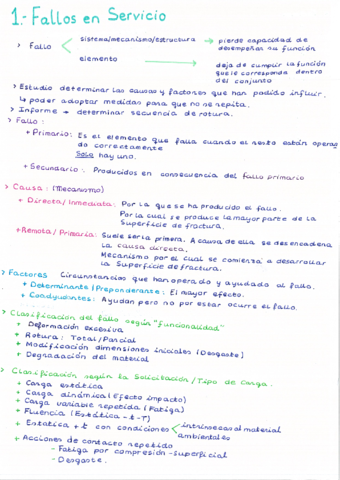 1.- Fallos en Servicio
> Fallo
sistema/mecanismo/estructura → pierde capacidad de desempeñar su función
elemento → deja de cumplir la función que le corresponda dentro del conjunto
> Estudio determinar las causas y factores que han podido influir.
↳ poder adoptar medidas para que no se repita.
> Informe → determinar secuencia de rotura.
> Fallo:
+ Primario: Es el elemento que falla cuando el resto están operando correctamente
Solo hay uno.
+ Secundario: Producidos en consecuencia del fallo primario
> Causa: (Mecanismo)
+ Directa/Inmediata: Por la que se ha producido el fallo.
Por la cual se produce la mayor parte de la
Superficie de fractura.
+ Remota/Primaria: Suele ser la primera. A causa de ella se desencadena
la causa directa.
Mecanismo por el cual se comienza a desarrollar
la Superficie de fractura.
> Factores Circunstancias que han operado y ayudado al fallo.
+ Determinante/Preponderante: El mayor efecto.
+ Coadyudantes: Ayudan pero no por estar ocurre el fallo.
> Clasificación del fallo según "Funcionalidad"
+ Deformación excesiva
+ Rotura: Total/Parcial
+ Modificación dimensiones iniciales (Desgaste)
+ Degradación del material
> Clasificación según la Solicitación/Tipo de Carga.
+ Carga estática
+ Carga dinámica (Efecto impacto)
+ Carga variable repetida (Fatiga)
+ Fluencia (Estática - t - T)
+ Estática + t con condiciones
intrínsecas al material
ambientales
+ Acciones de contacto repetido
- Fatiga por compresión - Superficial
- Desgaste.